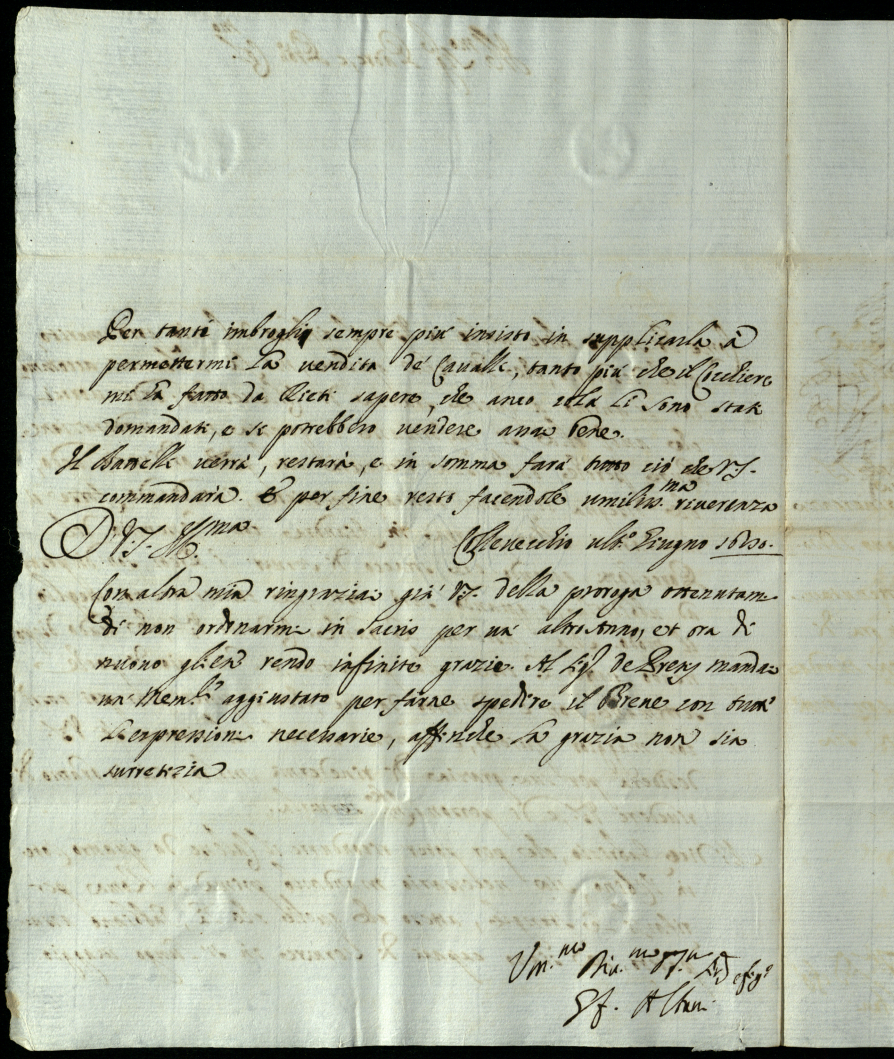 Per tanti imbrogli sempre più insisto in supplicarla à
permettermi la vendita de' Cavalli, tanto più che il Cocchiere
mi hà fatto da Rieti sapere, che anco colà li sono stati
domandati, e si potrebbero vendere assai bene.
Il Battelli verrà, restarà, e in somma farà tutto ciò che V.S.
commandarà. E per fine resto facendole umiliss.ma riverenza
D V.S. Ill.ma
Collevecchio ult.o Giugno
Con altra mia ringraziai già V.S. della proroga ottenutami
di non ordinarmi in Sacris per un' altro Anno, et ora di
nuovo glien rendo infinite grazie. Al Sig.r de manda
un mem.le aggiustato per farne spedire il Breve con tutte
l'espressioni necessarie, affinche la grazia non sia
surretizia
Um.mo
Albani